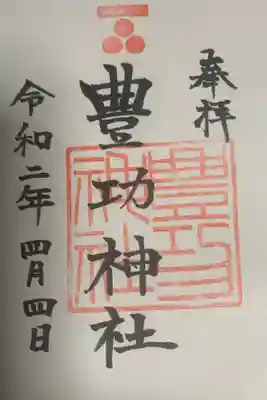 奉拝
豊功神社
豊功
神社
令和二年 四月四日